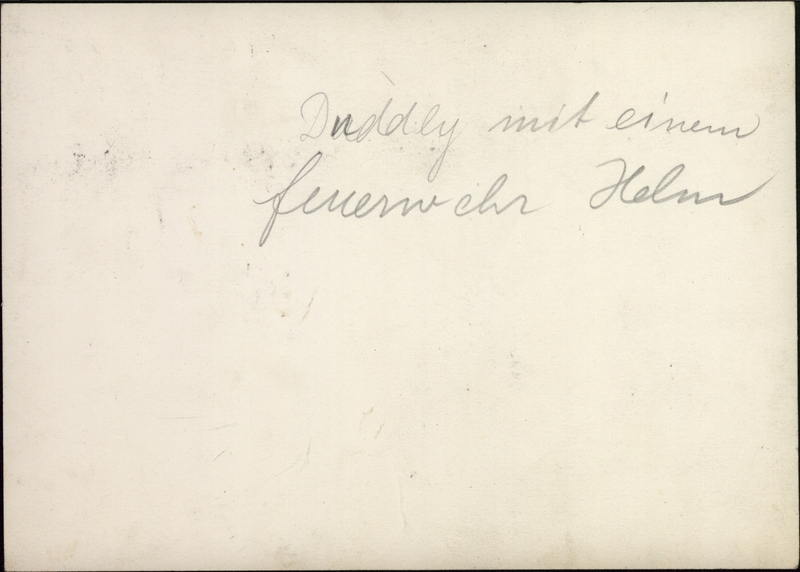 Duddly mit einem
feuerwehr Helm